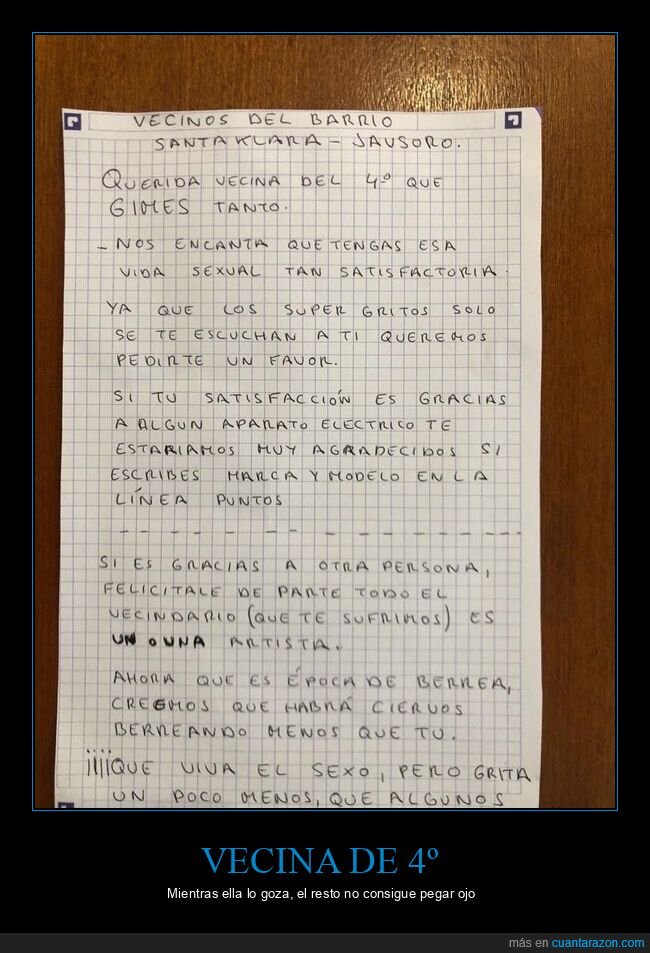 VECINOS DEL BARRIO
SANTA KLARA - JAUSORO.
QUERIDA VECINA DEL 4º QUE
GIMES TANTO.
- NOS ENCANTA QUE TENGAS ESA
VIDA SEXUAL TAN SATISFACTORIA.
YA QUE LOS SUPER GRITOS SOLO
SE TE ESCUCHAN A TI QUEREMOS
PEDIRTE UN FAVOR.
SI TU SATISFACCIÓN ES GRACIAS
A ALGUN APARATO ELECTRICO TE
ESTARIAMOS MUY AGRADECIDOS SI
ESCRIBES MARCA Y MODELO EN LA
LÍNEA PUNTOS
-- -- - -- - - - - - - ---
SI ES GRACIAS A OTRA PERSONA,
FELICITALE DE PARTE TODO EL
VECINDARIO (QUE TE SUFRIMOS) ES
UN O UNA ARTISTA.
AHORA QUE ES ÉPOCA DE BERREA,
CREEMOS QUE HABRÁ CIERVOS
BERREANDO MENOS QUE TU.
¡¡¡¡QUE VIVA EL SEXO, PERO GRITA
UN POCO MENOS, QUE ALGUNOS
VECINA DE 4º
Mientras ella lo goza, el resto no consigue pegar ojo
más en cuantarazon.com